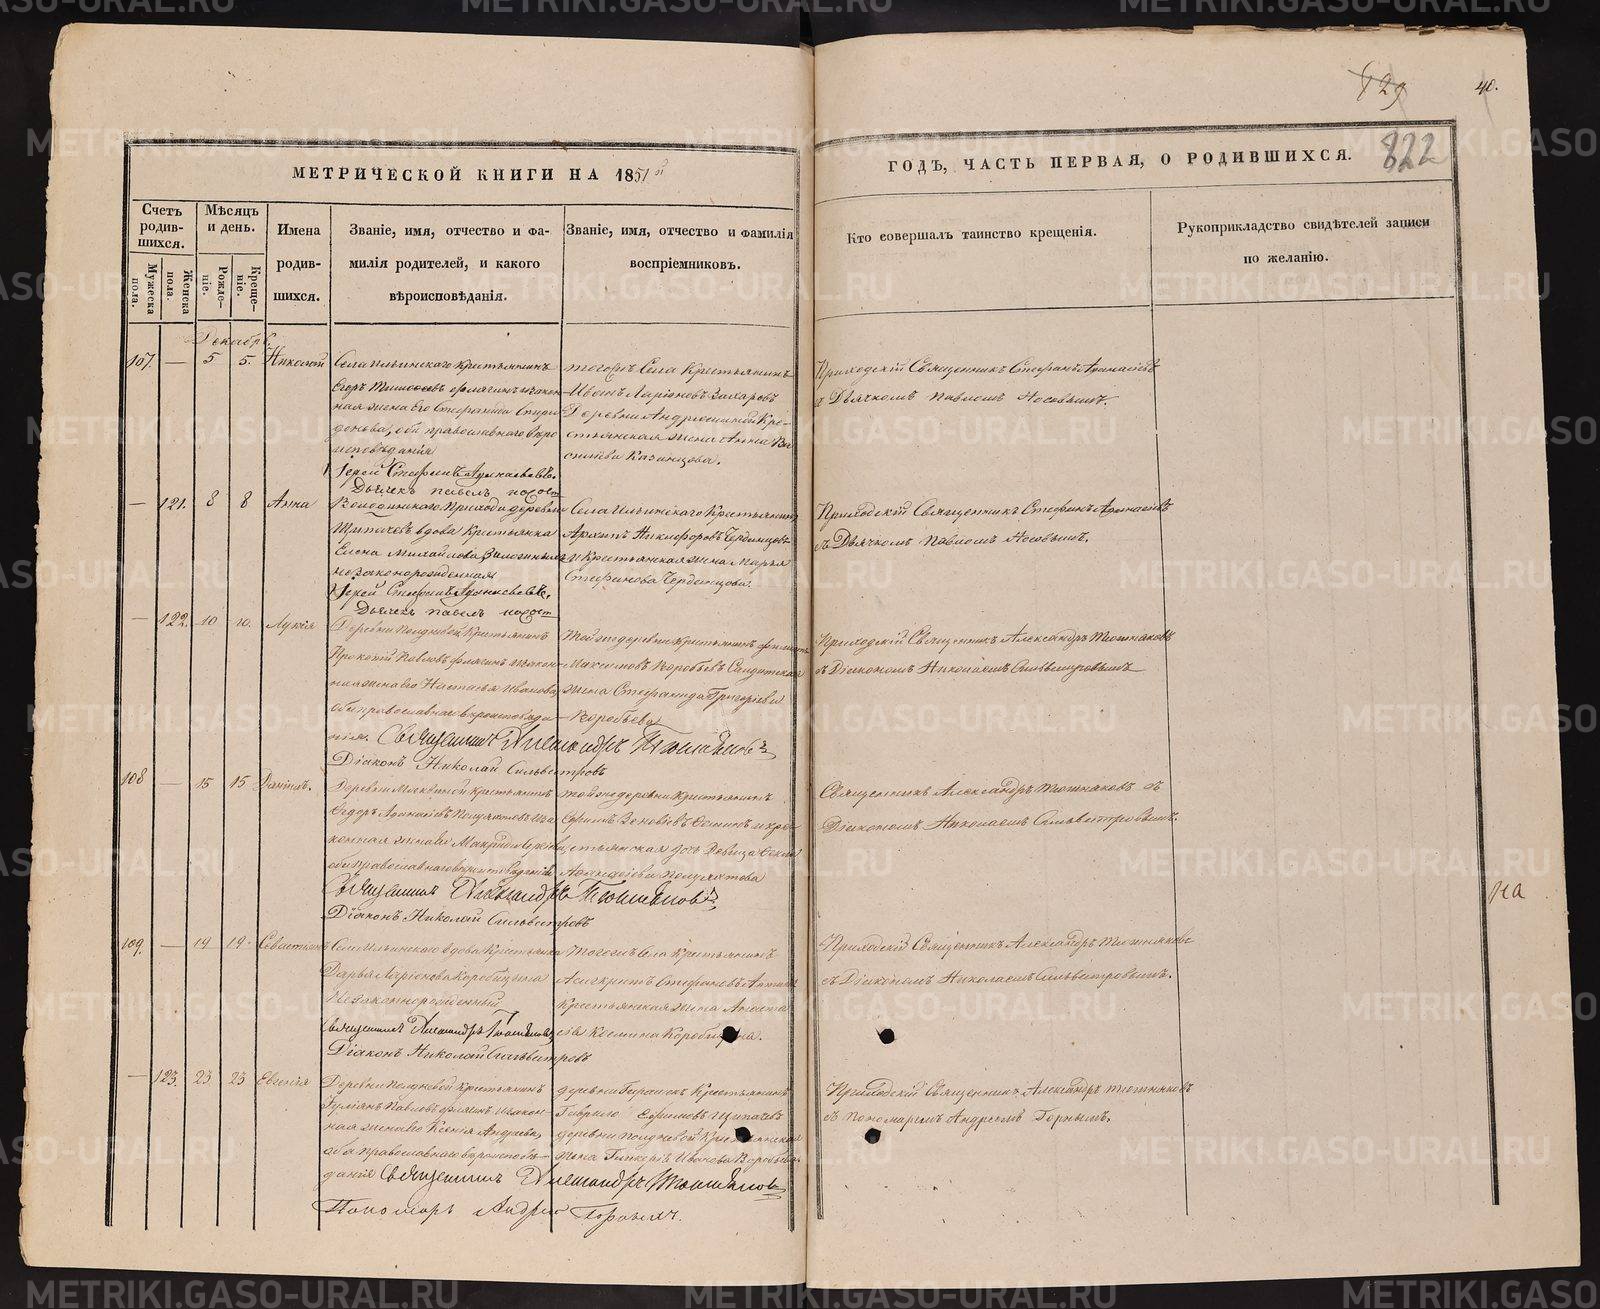 129
40.
822
МЕТРИЧЕСКОЙ КНИГИ НА 1851й
ГОДЪ, ЧАСТЬ ПЕРВАЯ, О РОДИВШИХСЯ.
Счетъ родив-шихся.
Мужеска пола.
Женска пола.
Мѣсяцъ и день.
Рожде-ніе.
Креще-ніе.
Имена родив-шихся.
Званіе, имя, отчество и фа-
милія родителей, и какого
вѣроисповѣданія.
Званіе, имя, отчество и фамилія
воспріемниковъ.
Кто совершалъ таинство крещенія.
Рукоприкладство свидѣтелей записи
по желанію.
Декабрь
107. — 5 5. Николай
Села Ильинскаго Крестьянинъ
Егоръ Флягинъ и закон
ная жена Его Стефанида Спири
донова, оба православнаго вѣро
исповѣданія
Іерей Стефанъ Аѳанасьевъ.
Дьячекъ Павелъ Носов
тогожъ Села Крестьянинъ
Иванъ Ларіоновъ Захаровъ
Деревни Андрюшиной Кре-
стьянская жена Анна Ва
Казанцова.
Приходскій Священникъ Стефанъ Аѳанасьевъ
с Дьячкомъ Павломъ Носовымъ.
— 121. 8 8 Анна
Прихода деревни
вдова Крестьянка
Елена Михайлова
незаконорожденная
Іерей Стефанъ Аѳанасьевъ.
Дьячекъ Павелъ Носов
Села Ильинскаго Крестьянинъ
Архипъ Никифоровъ Черданцовъ
и Крестьянская жена Марья
Стефанова Черданцова.
Приходскій Священникъ Стефанъ Аѳанасьевъ
съ Дьячкомъ Павломъ Носовымъ.
— 122. 10 10. Лукія
Деревни Полдневой Крестьянинъ
Прокопій Павловъ Флягинъ и закон
ная жена его Настасья Иванова,
оба православнаго вѣроисповѣда
нія. Священникъ Александръ Тюшняковъ
Діаконъ Николай Сильвестровъ
Той же деревни Крестьянинъ
Максимовъ Воробьевъ Солдатская
жена Стефанида Григорьева
Воробьева
Приходскій Священникъ Александръ Тюшняковъ
съ Діакономъ Николаемъ Сильвестровымъ
108 — 15 15 Даніилъ.
Деревни Крестьянинъ
Ѳедоръ Полуяхтовъ и за
конная жена его
оба православнаго вѣроисповѣданія
Священникъ Александръ Тюшняковъ
Діаконъ Николай Сильвестровъ
той же деревни Крестьянинъ
Ефимъ Зеновіевъ и кре-
стьянская дочь Девица
Полуяхтова
Священникъ Александръ Тюшняковъ съ
Діакономъ Николаемъ Сильвестровымъ.
109. — 19 19. Севастіанъ
Села Ильинскаго вдова Крестьянка
Дарья Ларіонова Коробицына
Незаконнорожденный
Священникъ Александръ Тюшняковъ
Діаконъ Николай Сильвестровъ
тогожъ Села Крестьянинъ
Стефановъ
Крестьянская жена Анаста
сья Косьмина Коробицына.
Приходскій Священникъ Александръ Тюшняковъ
съ Діакономъ Николаемъ Сильвестровымъ.
— 123. 23 23 Евгенія
Деревни Полдневой Крестьянинъ
Павловъ Флягинъ и закон-
ная жена его Ксенія Андреева,
оба православнаго вѣроисповѣ-
данія Священникъ Александръ Тюшняковъ
Пономарь Андрей Горныхъ.
деревни Крестьянинъ
Гаврило Ефимовъ
деревни Полдневой Крестьянская
жена Гликерія Иванова Воробьева
Приходскій Священникъ Александръ Тюшняковъ
съ Пономаремъ Андреемъ Горнымъ.
на
METRIKI.GASO-URAL.RU